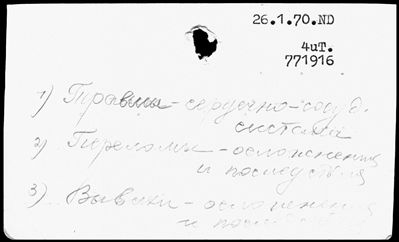 26.1.70.ND
4uT.
771916
1) Травмы - сердечно-сосуд.
система
2) Переломы - осложнения
и последствия
3) Вывихи - осложнения
и последствия